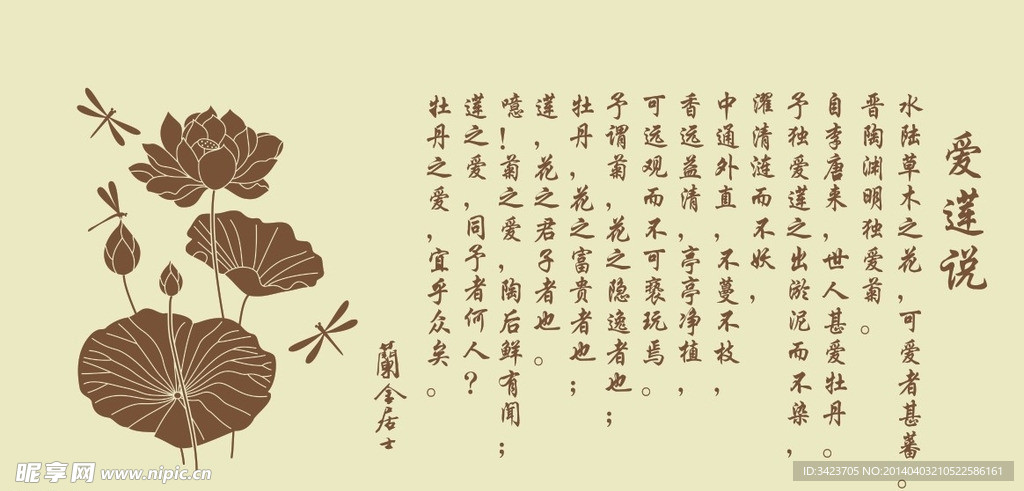 爱莲说
水陆草木之花,可爱者甚蕃。
晋陶渊明独爱菊。
自李唐来,世人甚爱牡丹。
予独爱莲之出淤泥而不染,
濯清涟而不妖,
中通外直,不蔓不枝,
香远益清,亭亭净植,
可远观而不可亵玩焉。
予谓菊,花之隐逸者也;
牡丹,花之富贵者也;
莲,花之君子者也。
噫!菊之爱,陶后鲜有闻;
莲之爱,同予者何人?
牡丹之爱,宜乎众矣。
蘭舍居士
昵享网 www.nipic.cn
ID:3423705 NO:20140403210522586161